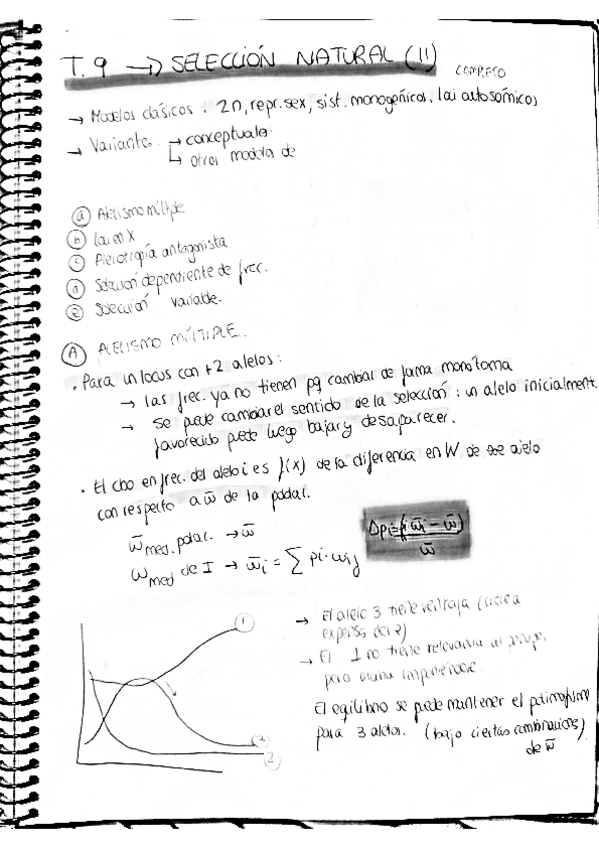 T.9 → SELECCIÓN NATURAL (II) COMPLETO
→ Modelos clásicos: 2n, repr. sex, sist. monogénicos, loci autosómicos
→ Variantes → conceptuales
↳ otros modelos de
ⓐ Alelismo múltiple
ⓑ loci en X
ⓒ Pleiotropía antagonista
ⓓ Selección dependiente de frec.
ⓔ Selección variable.
Ⓐ ALELISMO MÚLTIPLE.
· Para un locus con +2 alelos:
→ las frec. ya no tienen pq cambiar de forma monótoma
→ se puede cambiar el sentido de la selección: un alelo inicialment.
favorecido puede luego bajar y desaparecer.
· El cbo en frec. del alelo i es f(x) de la diferencia en W de ese alelo
con respecto a w̄ de la poblac.
w̄ med. poblac. → w̄
ω med de I → w̄i = ∑ pi·wij
Δpi = pi(w̄i − w̄) / w̄
①
③
②
→ El alelo 3 tiene ventaja (crece a
expensas del 2)
→ El 1 no tiene relevancia al princ.
pero
El equilibrio se puede mantener el polimorfismo
para 3 alelos. (bajo ciertas combinaciones)
de w̄